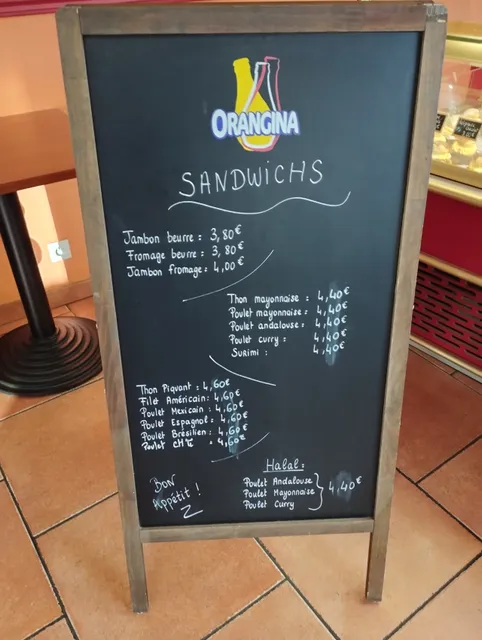 ORANGINA
SANDWICHS
Jambon beurre = 3,80€
Fromage beurre = 3,80€
Jambon fromage = 4,00€
Thon mayonnaise = 4,40€
Poulet mayonnaise = 4,40€
Poulet andalouse = 4,40€
Poulet curry : 4,40€
Surimi : 4,40€
Thon Piquant = 4,60€
Filet Américain : 4,60€
Poulet Mexicain : 4,60€
Poulet Espagnol : 4,60€
Poulet Brésilien : 4,60€
Poulet : 4,60€
Halal :
Poulet Andalouse
Poulet Mayonnaise } 4,40€
Poulet Curry
Bon
Appétit !